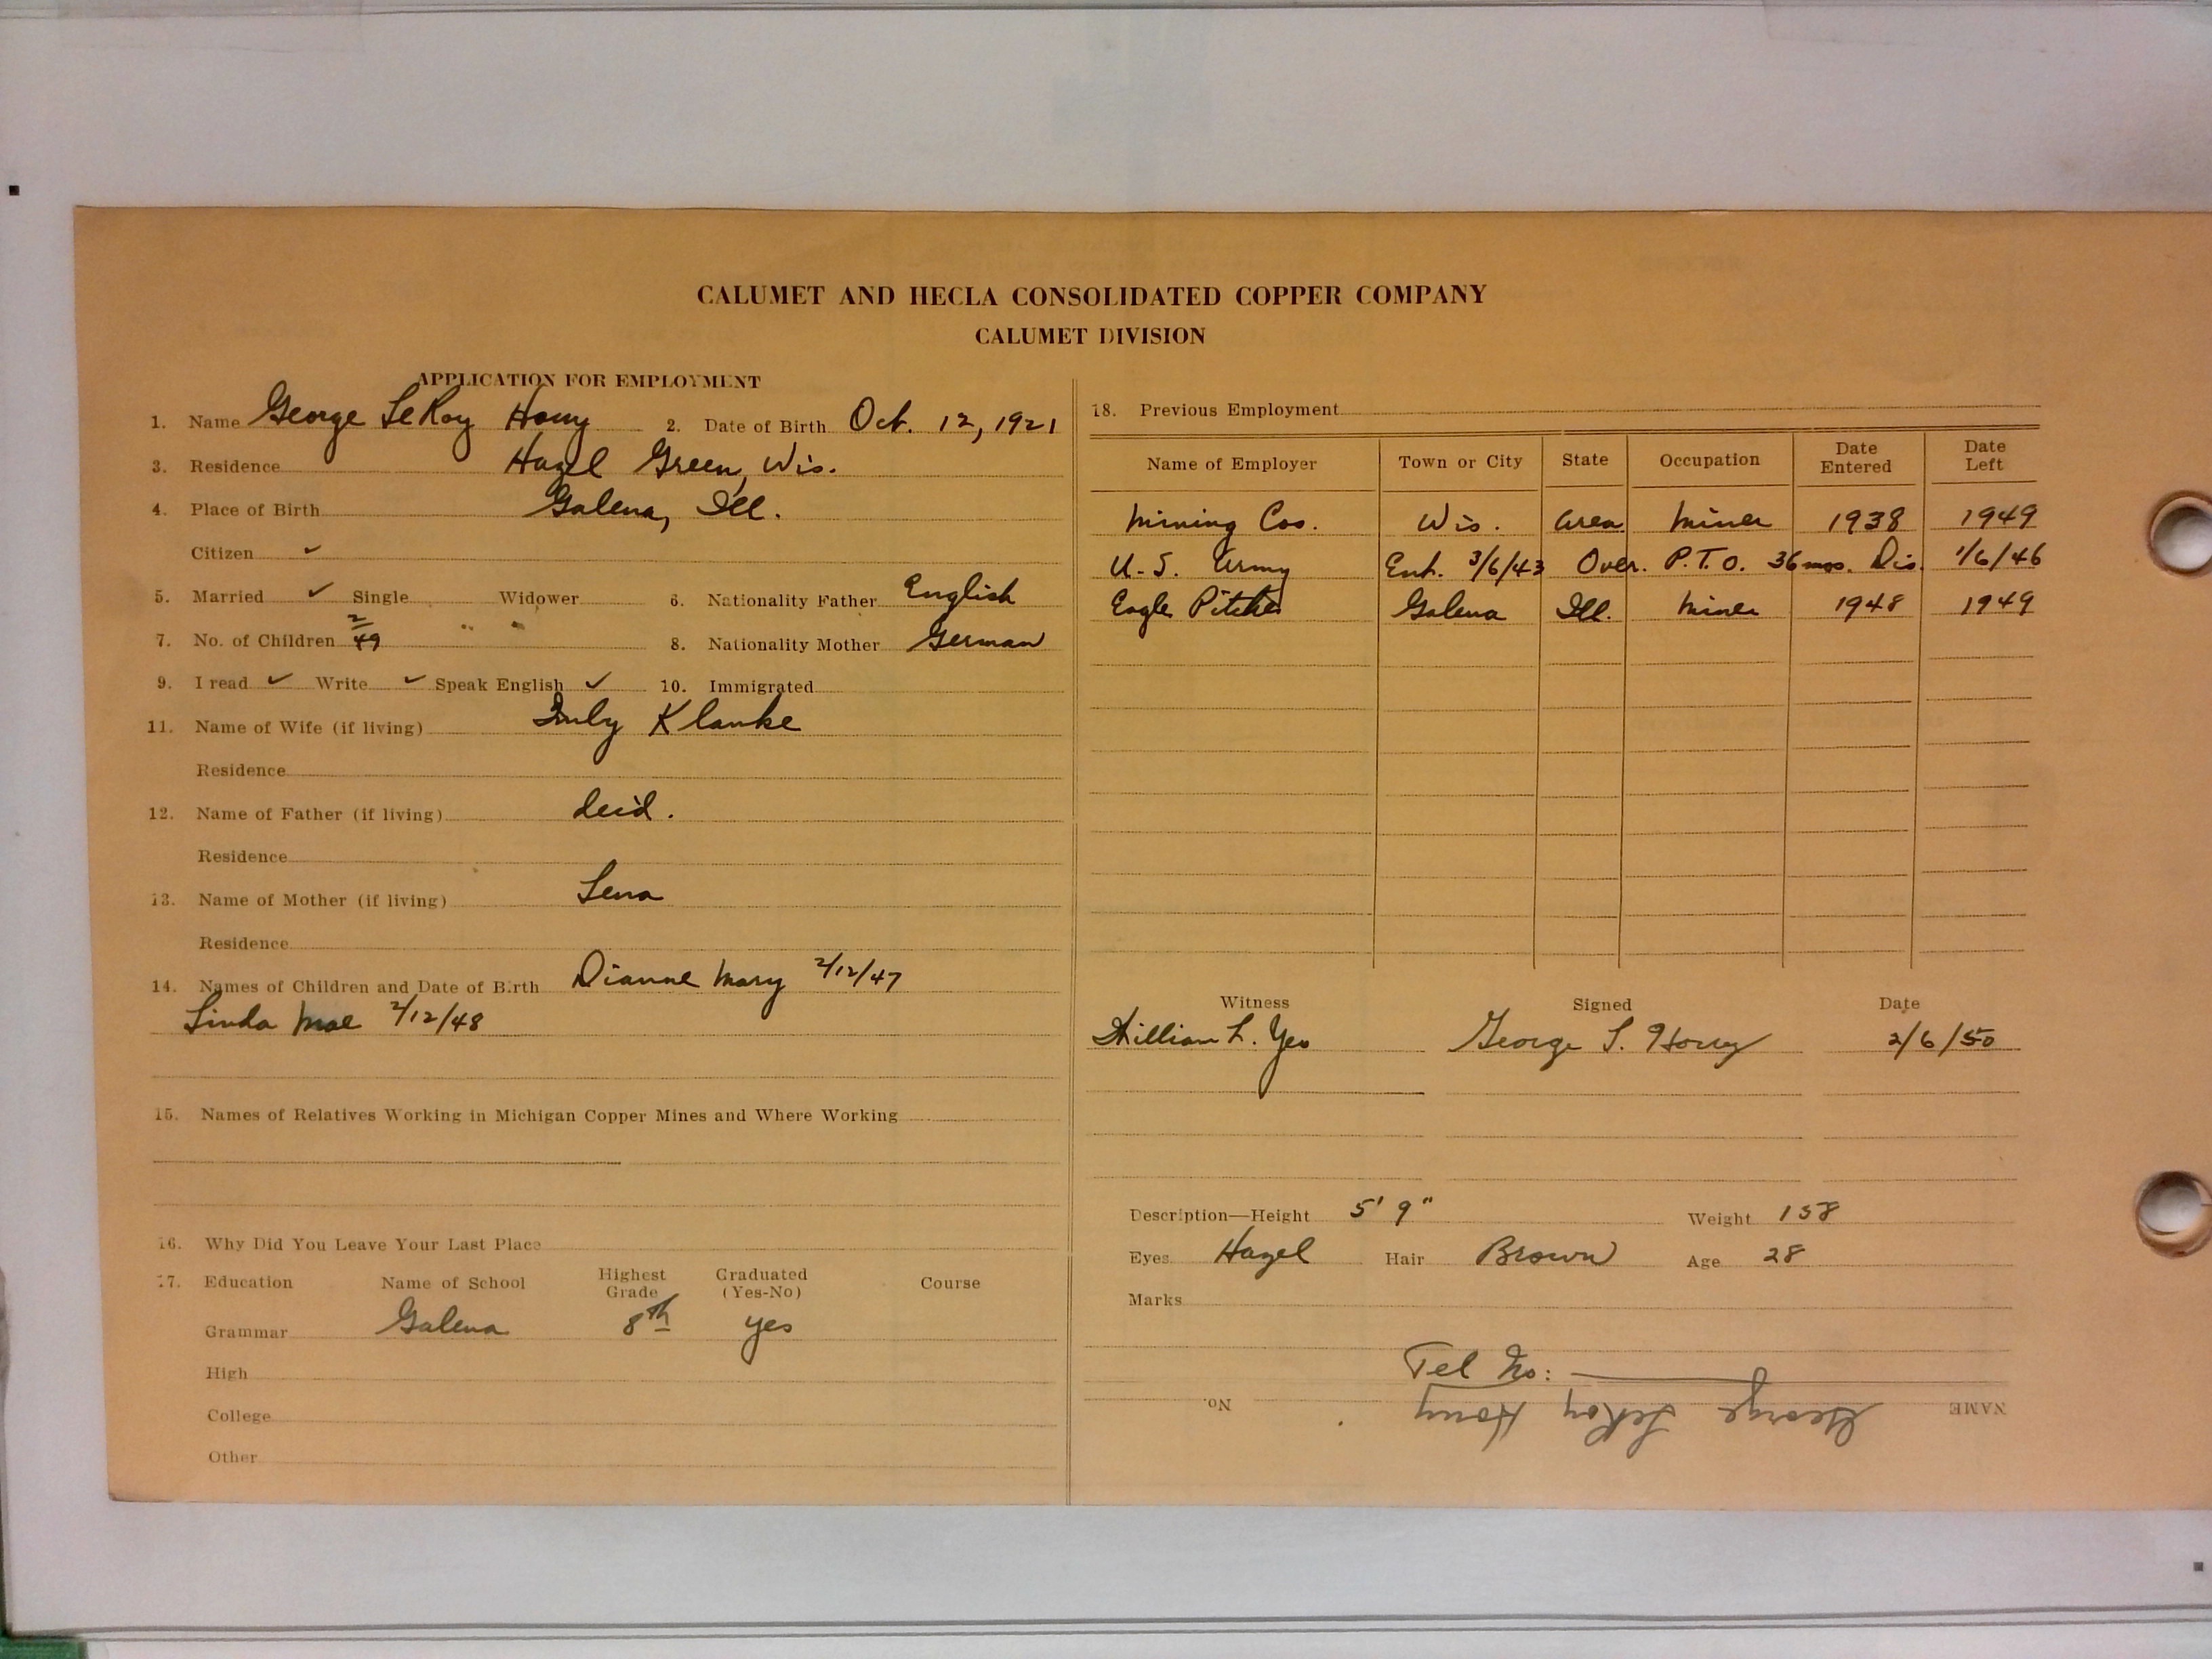 CALUMET AND HECLA CONSOLIDATED COPPER COMPANY
CALUMET DIVISION
APPLICATION FOR EMPLOYMENT
1. Name George LeRoy Hony 2. Date of Birth Oct. 12, 1921
3. Residence Hazel Green, Wis.
4. Place of Birth Galena, Ill.
Citizen ✓
5. Married ✓ Single Widower 6. Nationality Father English
7. No. of Children 2 8. Nationality Mother German
9. I read ✓ Write ✓ Speak English ✓ 10. Immigrated
11. Name of Wife (if living) Klauke
Residence
12. Name of Father (if living) decid.
Residence
13. Name of Mother (if living) Lena
Residence
14. Names of Children and Date of Birth Dianne Mary 2/12/47
Linda Mae 2/12/48
15. Names of Relatives Working in Michigan Copper Mines and Where Working
16. Why Did You Leave Your Last Place
17. Education Name of School Highest Grade Graduated (Yes-No) Course
Grammar Galena 8th yes
High
College
Other
18. Previous Employment
Name of Employer Town or City State Occupation Date Entered Date Left
Mining Cos. Wis. area Miner 1938 1949
U.S. Army Ent. 3/6/43 Over. P.T.O. 36 mos. Dis. 1/6/46
Eagle Pitcher Galena Ill. Miner 1948 1949
Witness Signed Date
William L. Yeo George L. Hony 2/6/50
Description—Height 5' 9" Weight 158
Eyes Hazel Hair Brown Age 28
Marks
Tel No:
NAME George LeRoy Hony No.